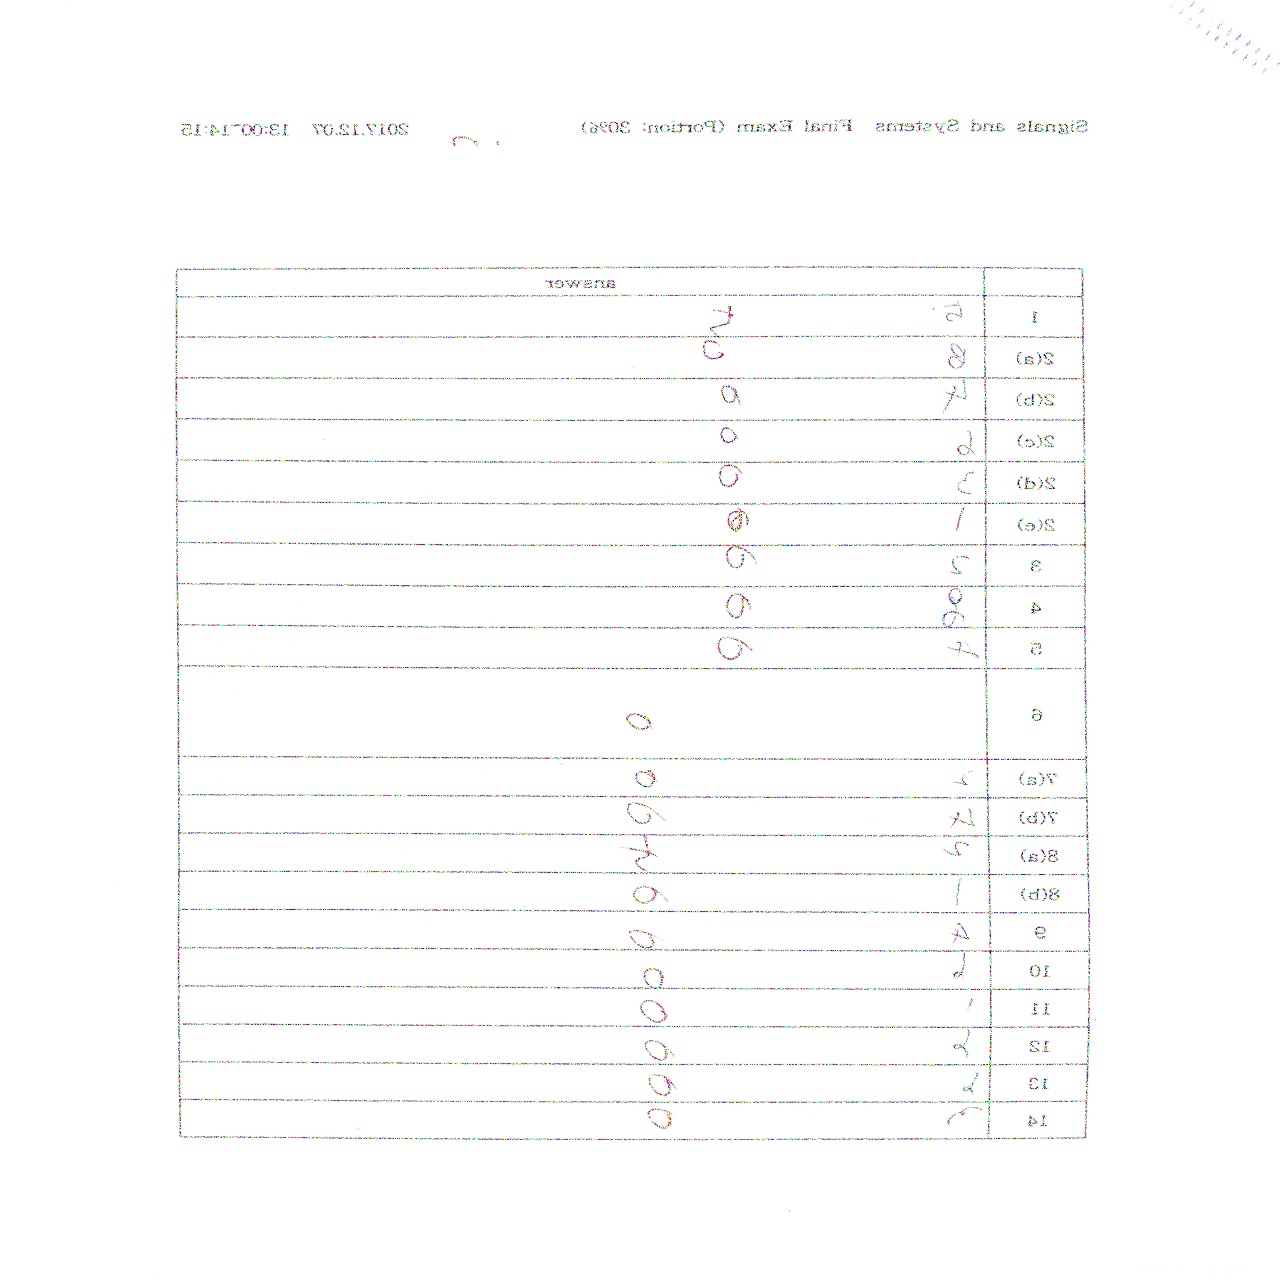 Signals and Systems Final Exam (Portion: 30%) 2017.12.07 13:00~14:15
answer
1 5
2(a) 8 0
2(b) 4 0
2(c) 2 0
2(d) 3 0
2(e) 1 0
3 2 0
4 0
5 4 0
6 0
7(a) 2 0
7(b) 4 0
8(a)
8(b) 1 0
9 4 0
10 2 0
11 1 0
12 2 0
13 2 0
14 0